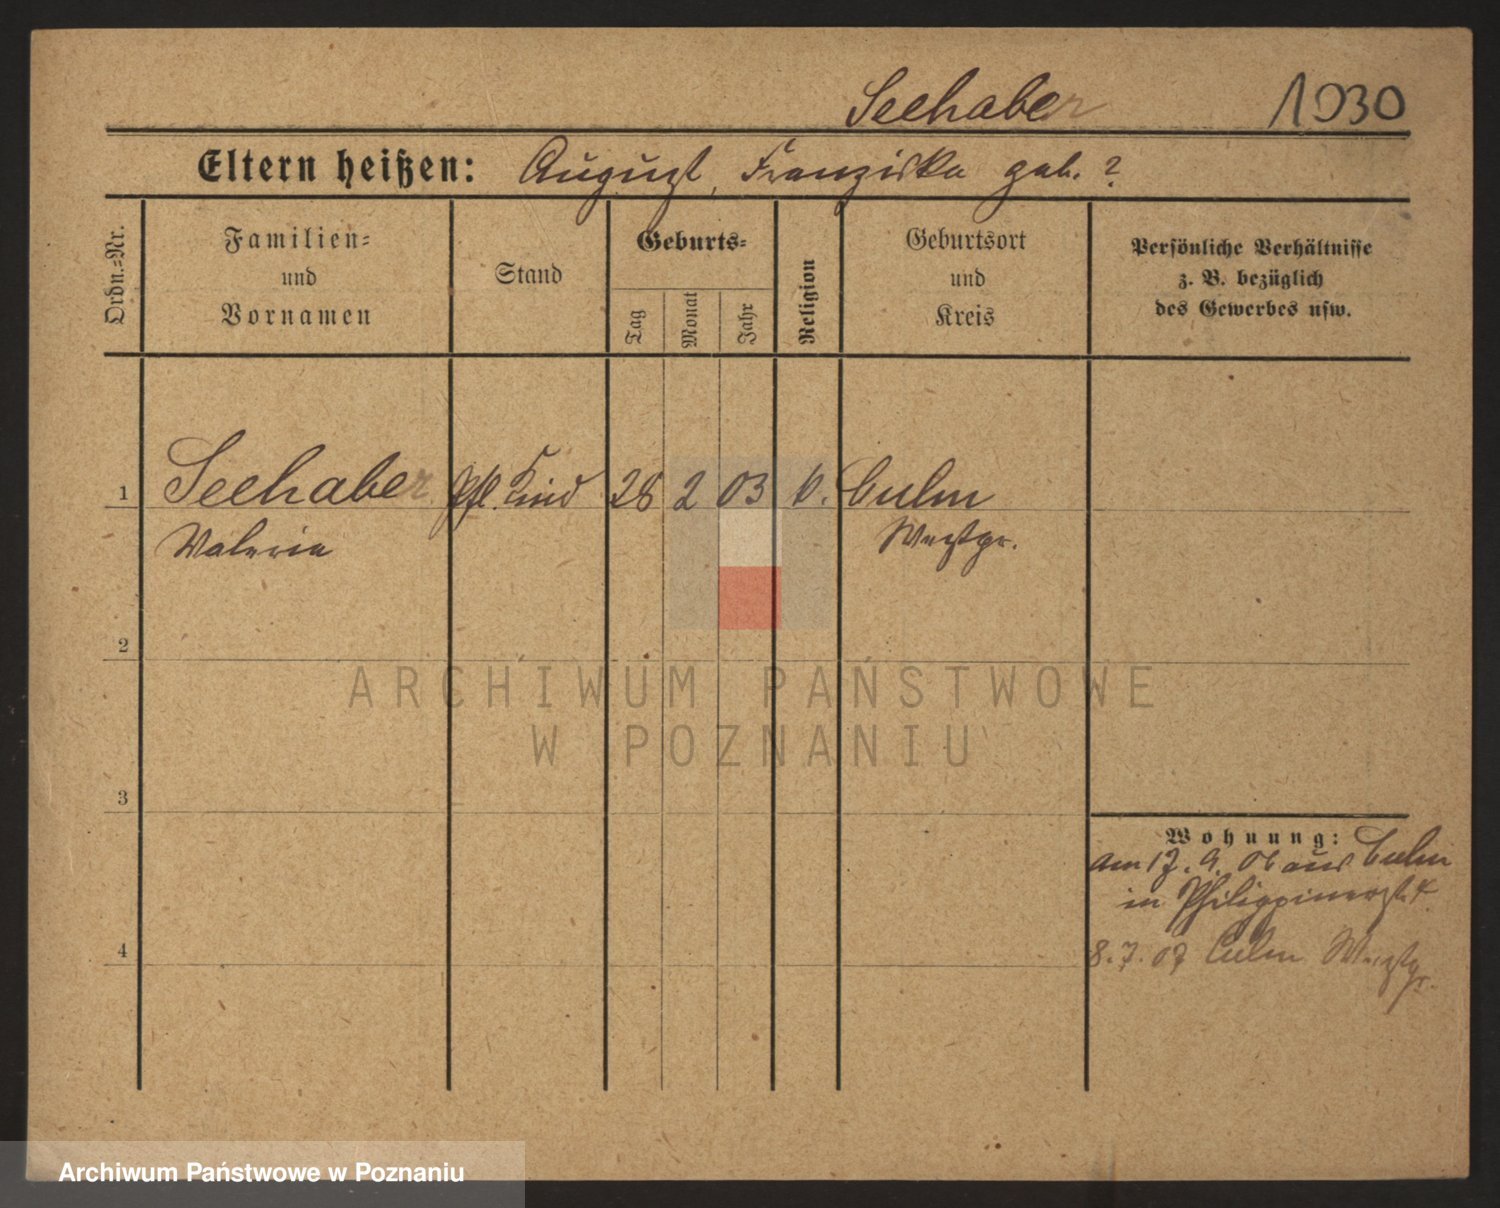 Seehaber 1030
Eltern heißen: August, Franziska geb. ?
Ordn.-Nr.
Familien-
und
Vornamen
Stand
Geburts-
Tag
Monat
Jahr
Religion
Geburtsort
und
Kreis
Persönliche Verhältnisse
z. B. bezüglich
des Gewerbes usw.
1 Seehaber Pfl. Kind 28 2 03 k. Culm
Valeria Westpr.
2
3
4
Wohnung:
am 17. 9. 06 aus Culm
in Philippinerstr. 4
8. 7. 07 Culm Westpr.
ARCHIWUM PAŃSTWOWE
W POZNANIU
Archiwum Państwowe w Poznaniu